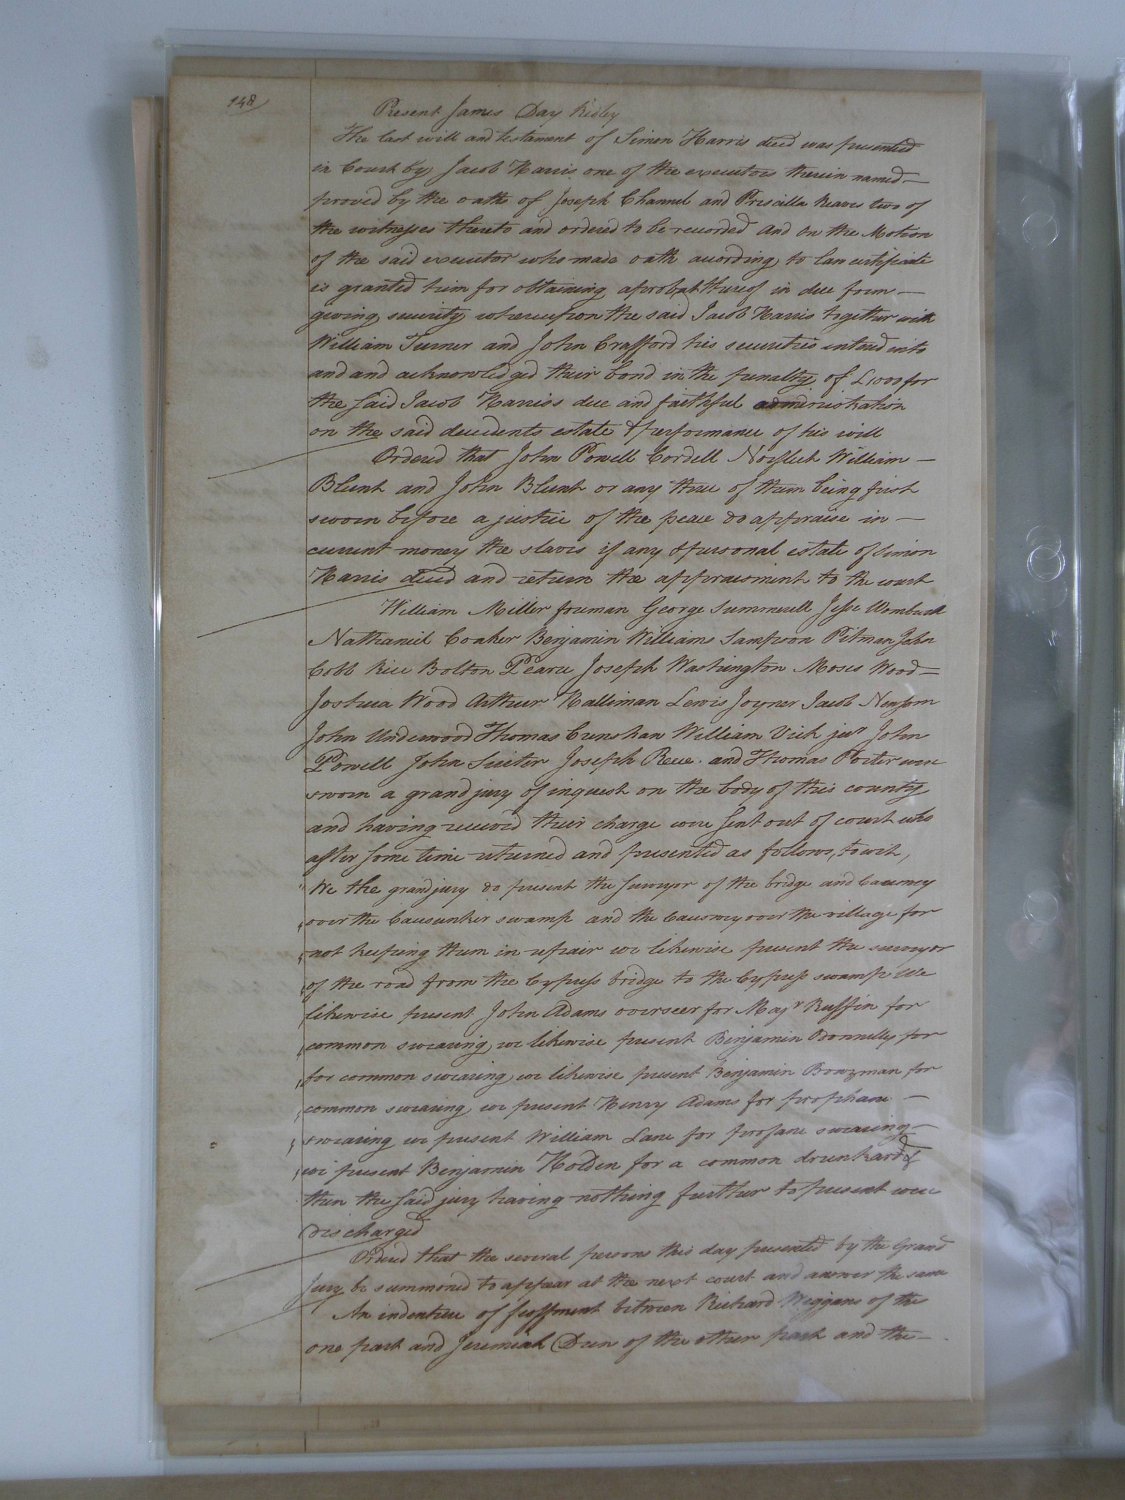 148
Present James Day Ridley
The last will and testament of Simon Harris decd was presented
in Court by Jacob Harris one of the executors therein named
proved by the oath of Joseph Channel and Priscilla Reaves two of
the witnesses thereto and ordered to be recorded and on the Motion
of the said executor who made oath according to law certificate
is granted him for obtaining a probat thereof in due form
giving security whereupon the said Jacob Harris together with
William Turner and John Crafford his securities entered into
and and acknowledged their bond in the penalty of £1000 for
the said Jacob Harris's due and faithful administration
on the said decedents estate & performance of his will
Ordered that John Powell Cordell Norfleet William
Blunt and John Blunt or any three of them being first
sworn before a justice of the peace do appraise in
current money the slaves if any & personal estate of Simon
Harris decd and return the appraisment to the court
William Miller foreman George Summerell Jesse Wombwell
Nathaniel Coaker Benjamin Williams Sampson Pitman John
Cobb Rice Bolton Pearce Joseph Washington Moses Wood
Joshua Wood Arthur Halliman Lewis Joyner Jacob Newsom
John Underwood Thomas William Vick junr John
Powell John Suiter Joseph Reese and Thomas Porter were
sworn a grand jury of inquest on the body of this county
and having received their charge were sent out of court who
after some time returned and presented as follows, towit,
"We the grand jury do present the surveyor of the bridge and Causwey
over the swamp and the Causwey over the village for
not keeping them in repair we likewise present the surveyor
of the road from the Cypress bridge to the Cypress swamp We
likewise present John Adams overseer for Majr Ruffin for
common swearing, we likewise present Benjamin Odonnelly for
for common swearing, we likewise present Benjamin Bowzman for
common swearing, we present Henry Adams for prophane
swearing we present William Lane for profane swearing
we present Benjamin Holden for a common drunkard &
then the said jury having nothing further to present were
discharged
Ordered that the several persons this day presented by the Grand
jury be summoned to appear at the next court and answer the same
An indenture of feoffment between Richard Wiggans of the
one part and Jeremiah Drew of the other part and the